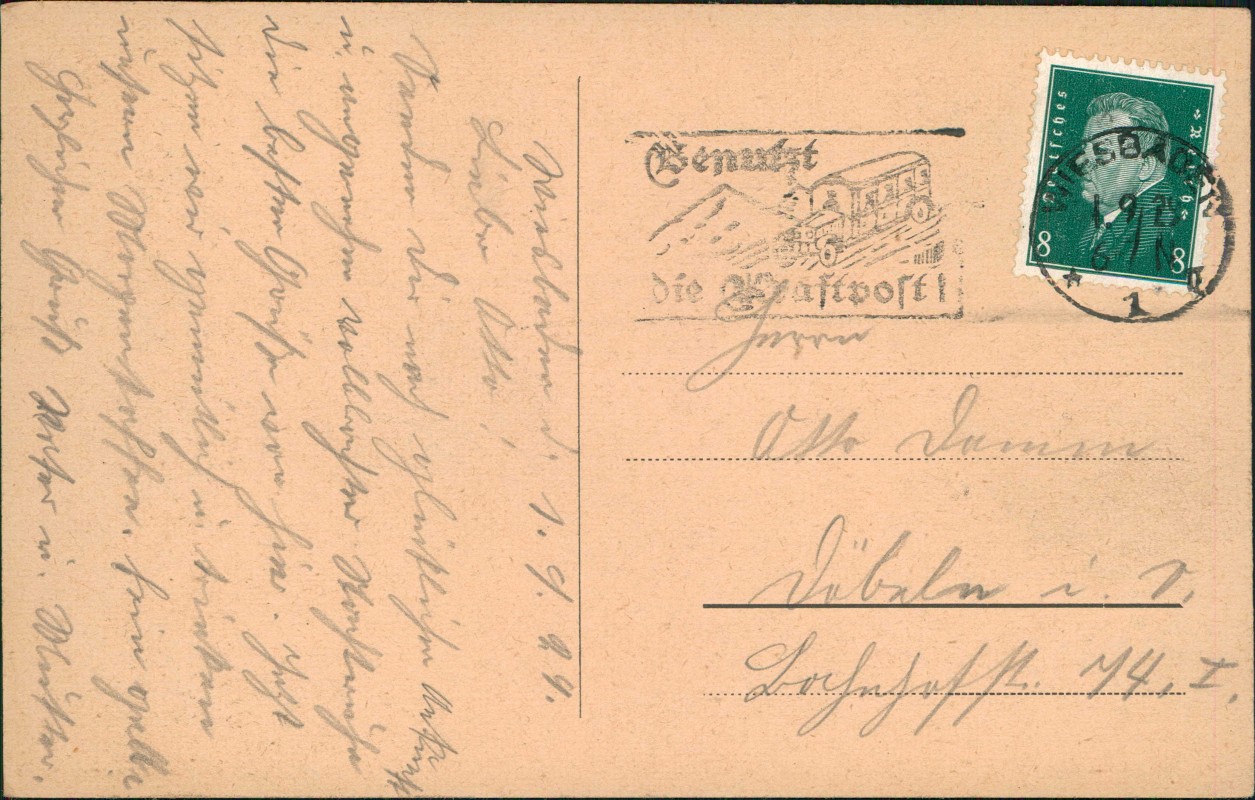 Wiesbaden d. 1. 9. 29.
Lieber Otto!
Senden Dir nach glücklicher Ankunft
u. ungemein vollbrachter Nachtruhe
die besten Grüße von hier. Jetzt
sitzen wir gemütlich u. trinken
unseren Morgenkaffee.
Herzlichen Gruß Vater u. Mutter.
Benutzt
die Kraftpost!
Deutsches Reich
8 8
WIESBADEN
1. 9. 29
6-7 N
* 1 *
Herrn
Otto Damm
Döbeln i. S.
Bahnhofstr. 74, I.